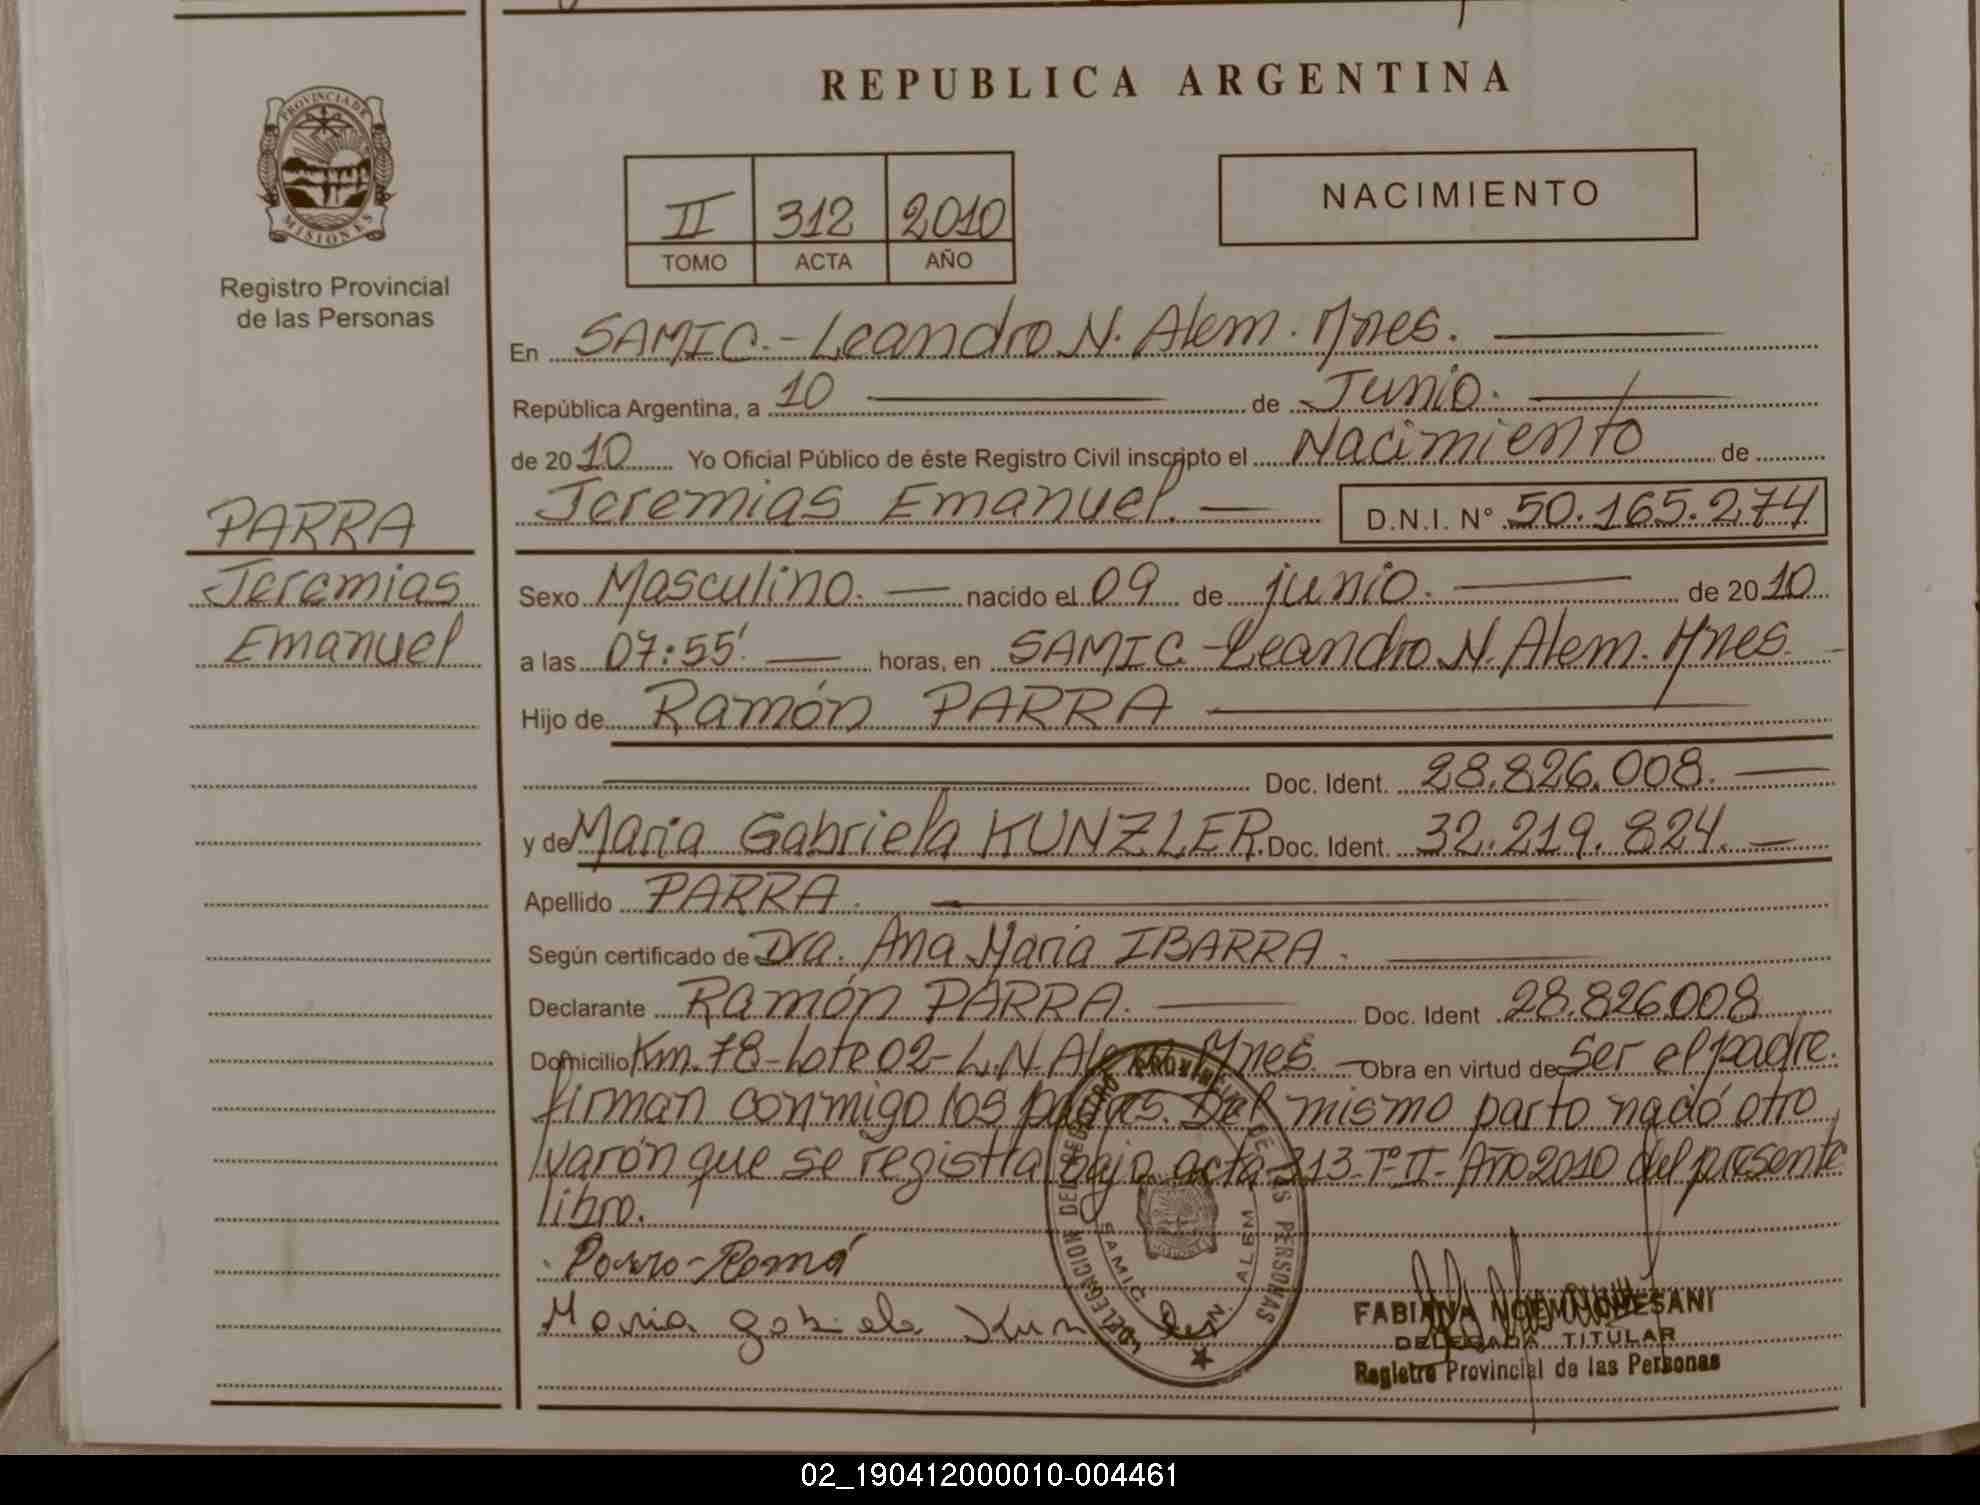 REPUBLICA ARGENTINA
PROVINCIA DE
MISIONES
Registro Provincial
de las Personas
II 312 2010
TOMO ACTA AÑO
NACIMIENTO
En SAMIC.-Leandro N. Alem. Mnes.
República Argentina, a 10 de Junio.
de 2010 Yo Oficial Público de éste Registro Civil inscripto el Nacimiento de
Jeremias Emanuel. D.N.I. N° 50.165.274
PARRA
Jeremias
Emanuel
Sexo Masculino. nacido el 09 de junio. de 2010
a las 07:55' horas, en SAMIC.-Leandro N. Alem. Mnes.
Hijo de Ramón PARRA
Doc. Ident. 28.826.008.
y de Maria Gabriela KUNZLER Doc. Ident. 32.219.824.
Apellido PARRA.
Según certificado de Dra. Ana Maria IBARRA.
Declarante Ramón PARRA. Doc. Ident 28.826.008
Domicilio Km.78-Lote 02-L.N.Alem. Mnes. Obra en virtud de Ser el padre.
firman conmigo los padres. Del mismo parto nació otro
varón que se registra bajo acta 313-T°-II-Año 2010 del presente
libro.
Maria gabriela Kunzler
DELEGACION DEL REGISTRO PROVINCIAL DE LAS PERSONAS
SAMIC N. ALEM
FABIANA NOEMI
DELEGADA TITULAR
Registro Provincial de las Personas
02_190412000010-004461